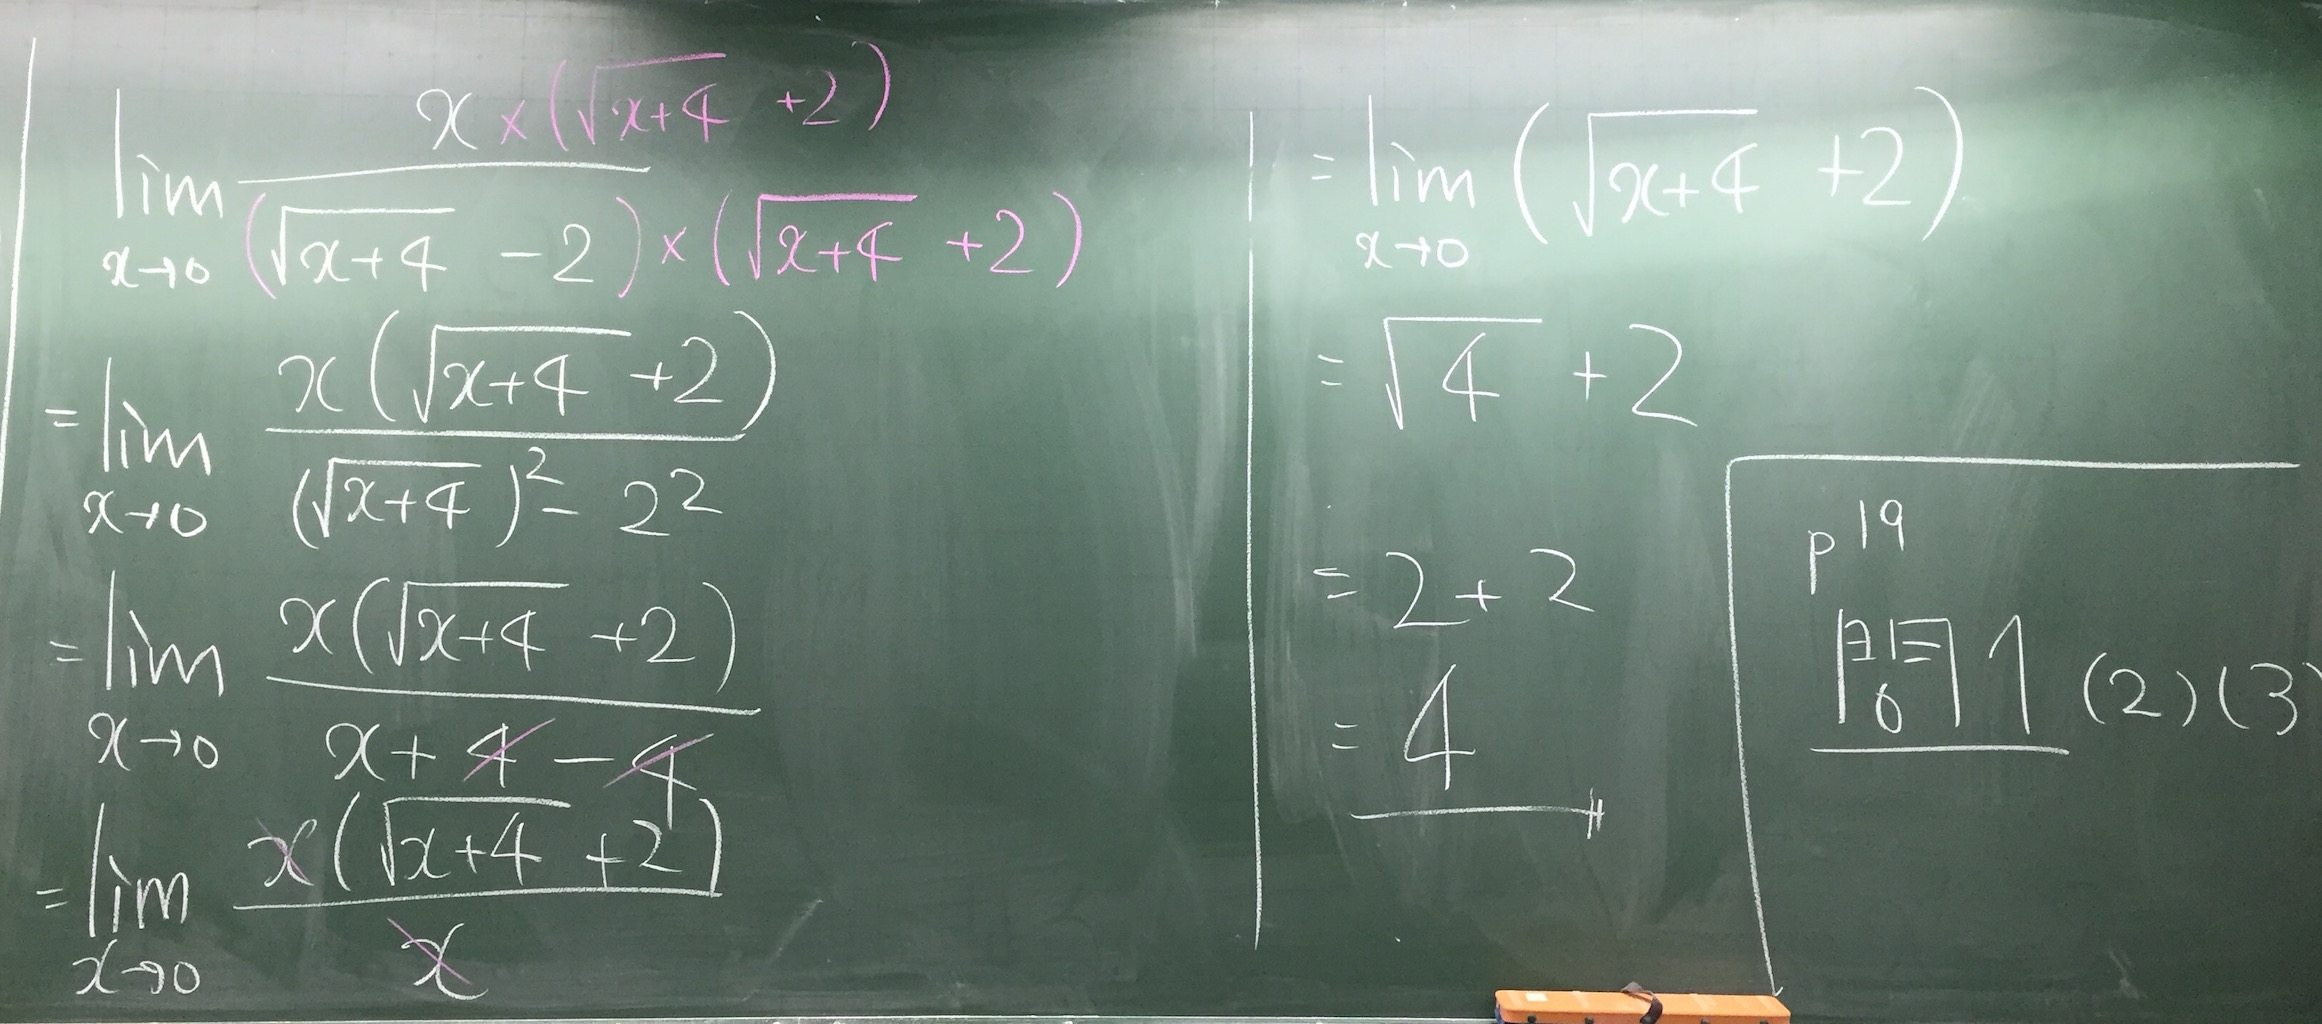 lim x→0 x×(√(x+4) +2) / (√(x+4) -2)×(√(x+4) +2)
= lim x→0 x(√(x+4) +2) / (√(x+4))² - 2²
= lim x→0 x(√(x+4) +2) / x+4-4
= lim x→0 x(√(x+4) +2) / x
= lim x→0 (√(x+4) +2)
= √4 + 2
= 2 + 2
= 4
p19
問 1 (2)(3)